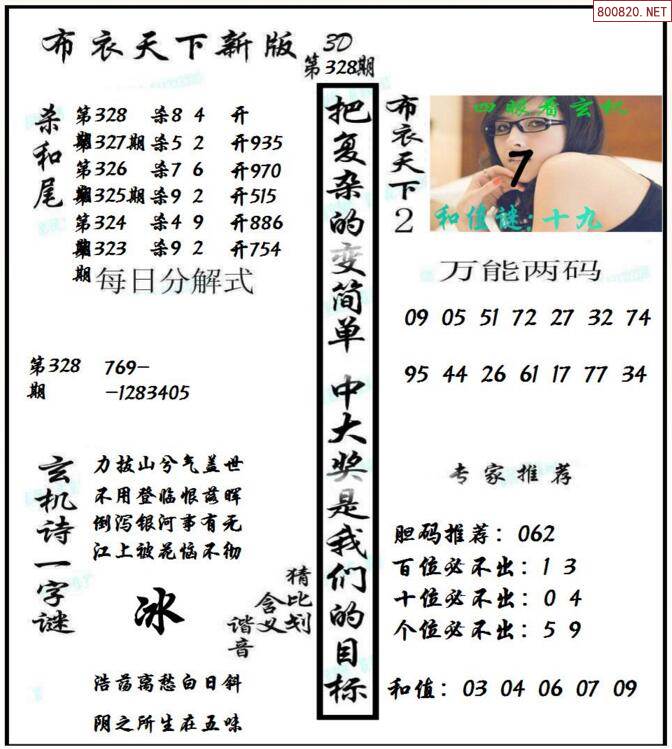 800820.NET
布衣天下新版
3D
第328期
杀和尾
第328期 杀8 4 开
第327期 杀5 2 开935
第326期 杀7 6 开970
第325期 杀9 2 开515
第324期 杀4 9 开886
第323期 杀9 2 开754
每日分解式
第328期
769-
-1283405
玄机诗一字谜
力拔山兮气盖世
不用登临恨落晖
倒泻银河事有无
江上被花恼不彻
冰
猜比划
含义
谐音
浩荡离愁白日斜
阴之所生在五味
把复杂的变简单 中大奖是我们的目标
布衣天下2
四眼看玄机
7
和值谜:十九
万能两码
09 05 51 72 27 32 74
95 44 26 61 17 77 34
专家推荐
胆码推荐：062
百位必不出：1 3
十位必不出：0 4
个位必不出：5 9
和值：03 04 06 07 09